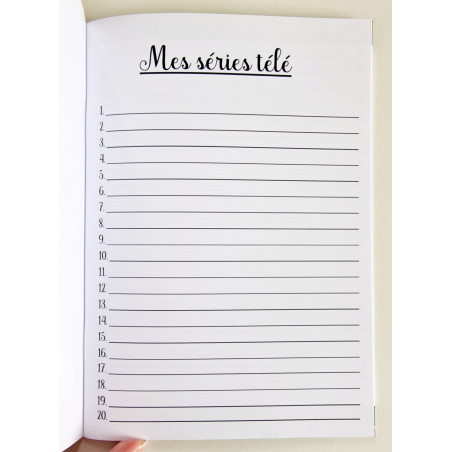 Mes séries télé
1.
2.
3.
4.
5.
6.
7.
8.
9.
10.
11.
12.
13.
14.
15.
16.
17.
18.
19.
20.